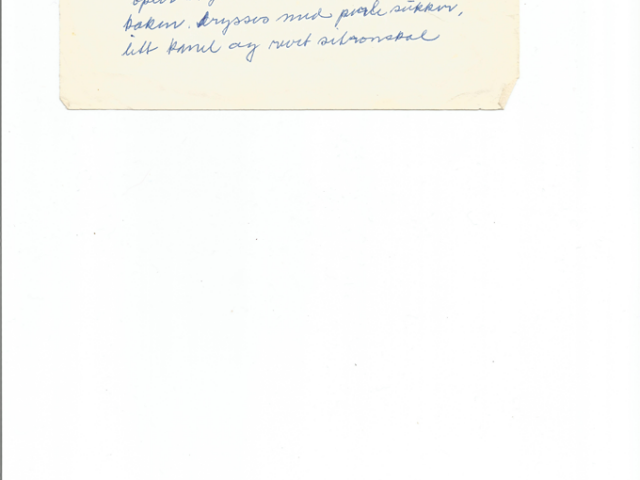 kaken. Drysses med perle sukker,
litt kanel og revet sitronskal